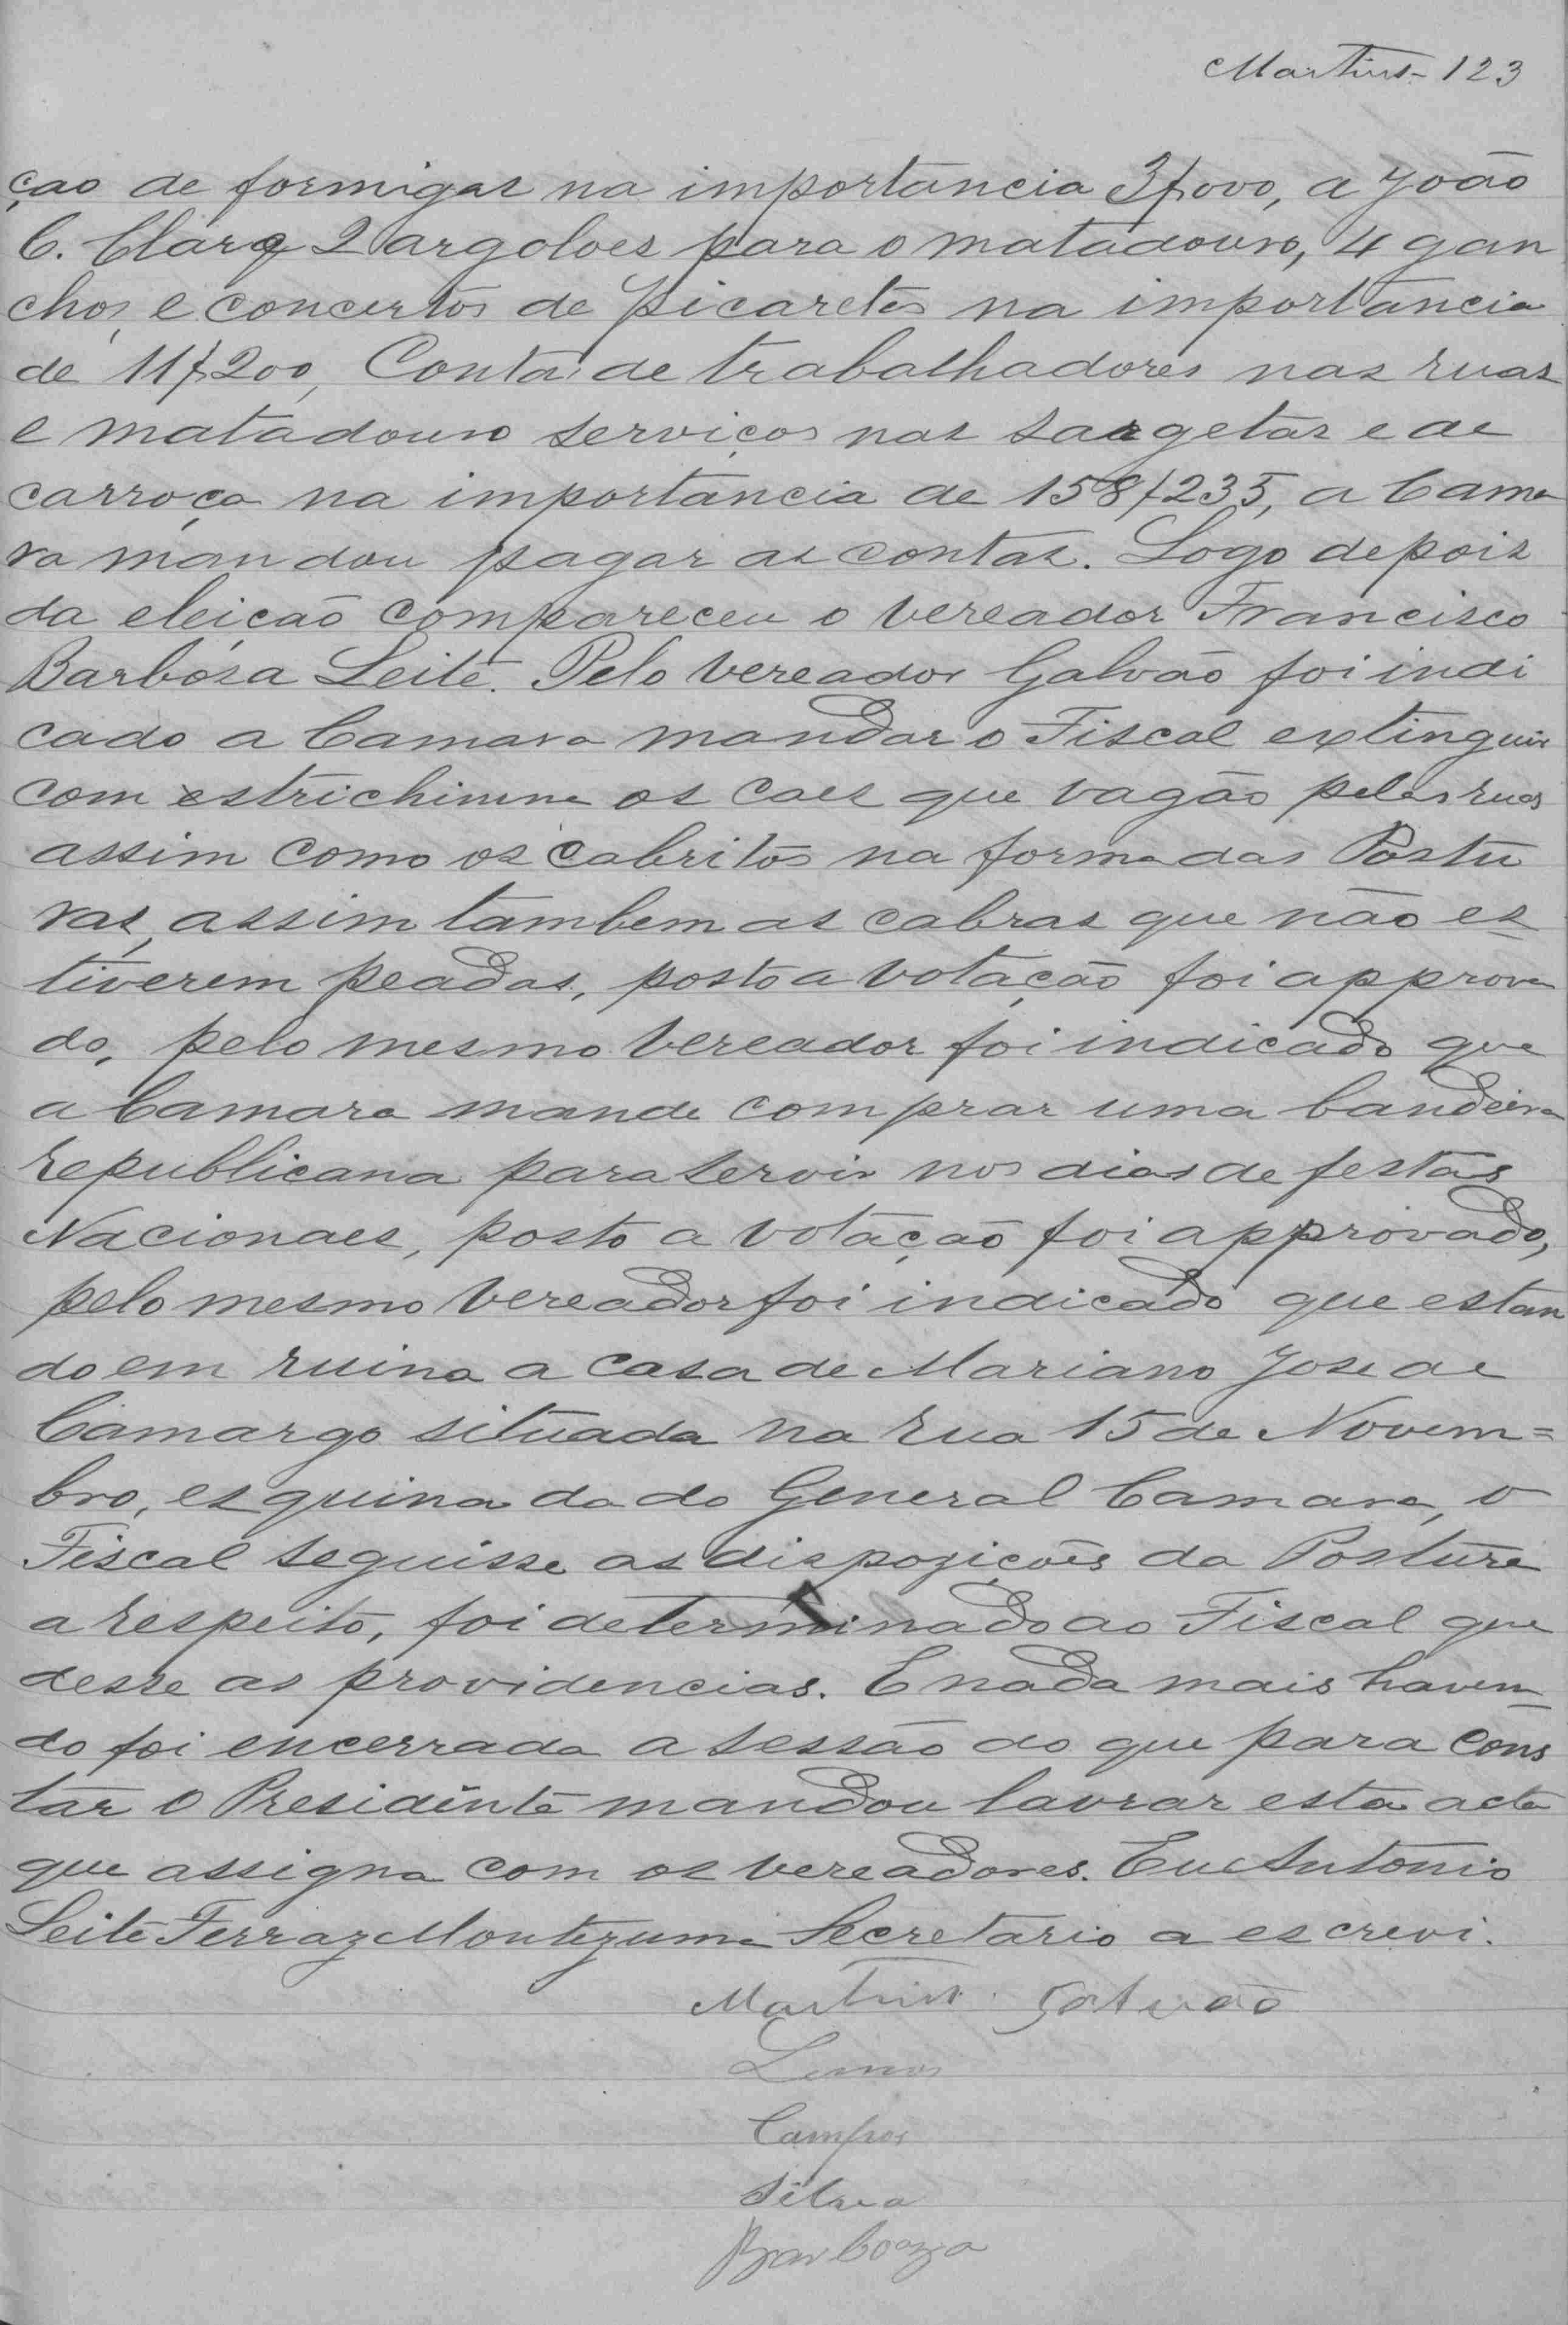 Martins 123
ção de formigas na importancia 3$000, a João
C. Clarq 2 argolões para o matadouro, 4 gan
chos, e concertos de picaretes na importancia
de 11$200, Conta de trabalhadores nas ruas
e matadouro serviços nas sargetas e de
carroça na importancia de 158$235, a Cama
ra mandou pagar as contas. Logo depois
da eleição compareceu o vereador Francisco
Barbosa Leite. Pelo vereador Galvão foi indi
cado a Camara mandar o Fiscal extinguir
com estrichinina os caes que vagão pelas ruas
assim como os cabritos na forma das Postu
ras, assim tambem as cabras que não es
tiverem peadas, posto a votação foi approva
do, pelo mesmo vereador foi indicado que
a Camara mande comprar uma bandeira
republicana para servir nos dias de festas
Nacionaes, posto a votação foi approvado,
pelo mesmo vereador foi indicado que estan
do em ruina a casa de Mariano Jose de
Camargo situada na rua 15 de Novem=
bro, esquina da do General Camara, o
Fiscal seguisse as dispozições da Postura
a respeito, foi determinado ao Fiscal que
desse as providencias. E nada mais haven
do foi encerrada a sessão do que para cons
tar o Presidente mandou lavrar esta acta
que assigna com os vereadores. Eu Antonio
Leite Ferraz Montezuma Secretario a escrevi.
Martins Galvão
Lemos
Campos
Silva
Barboza